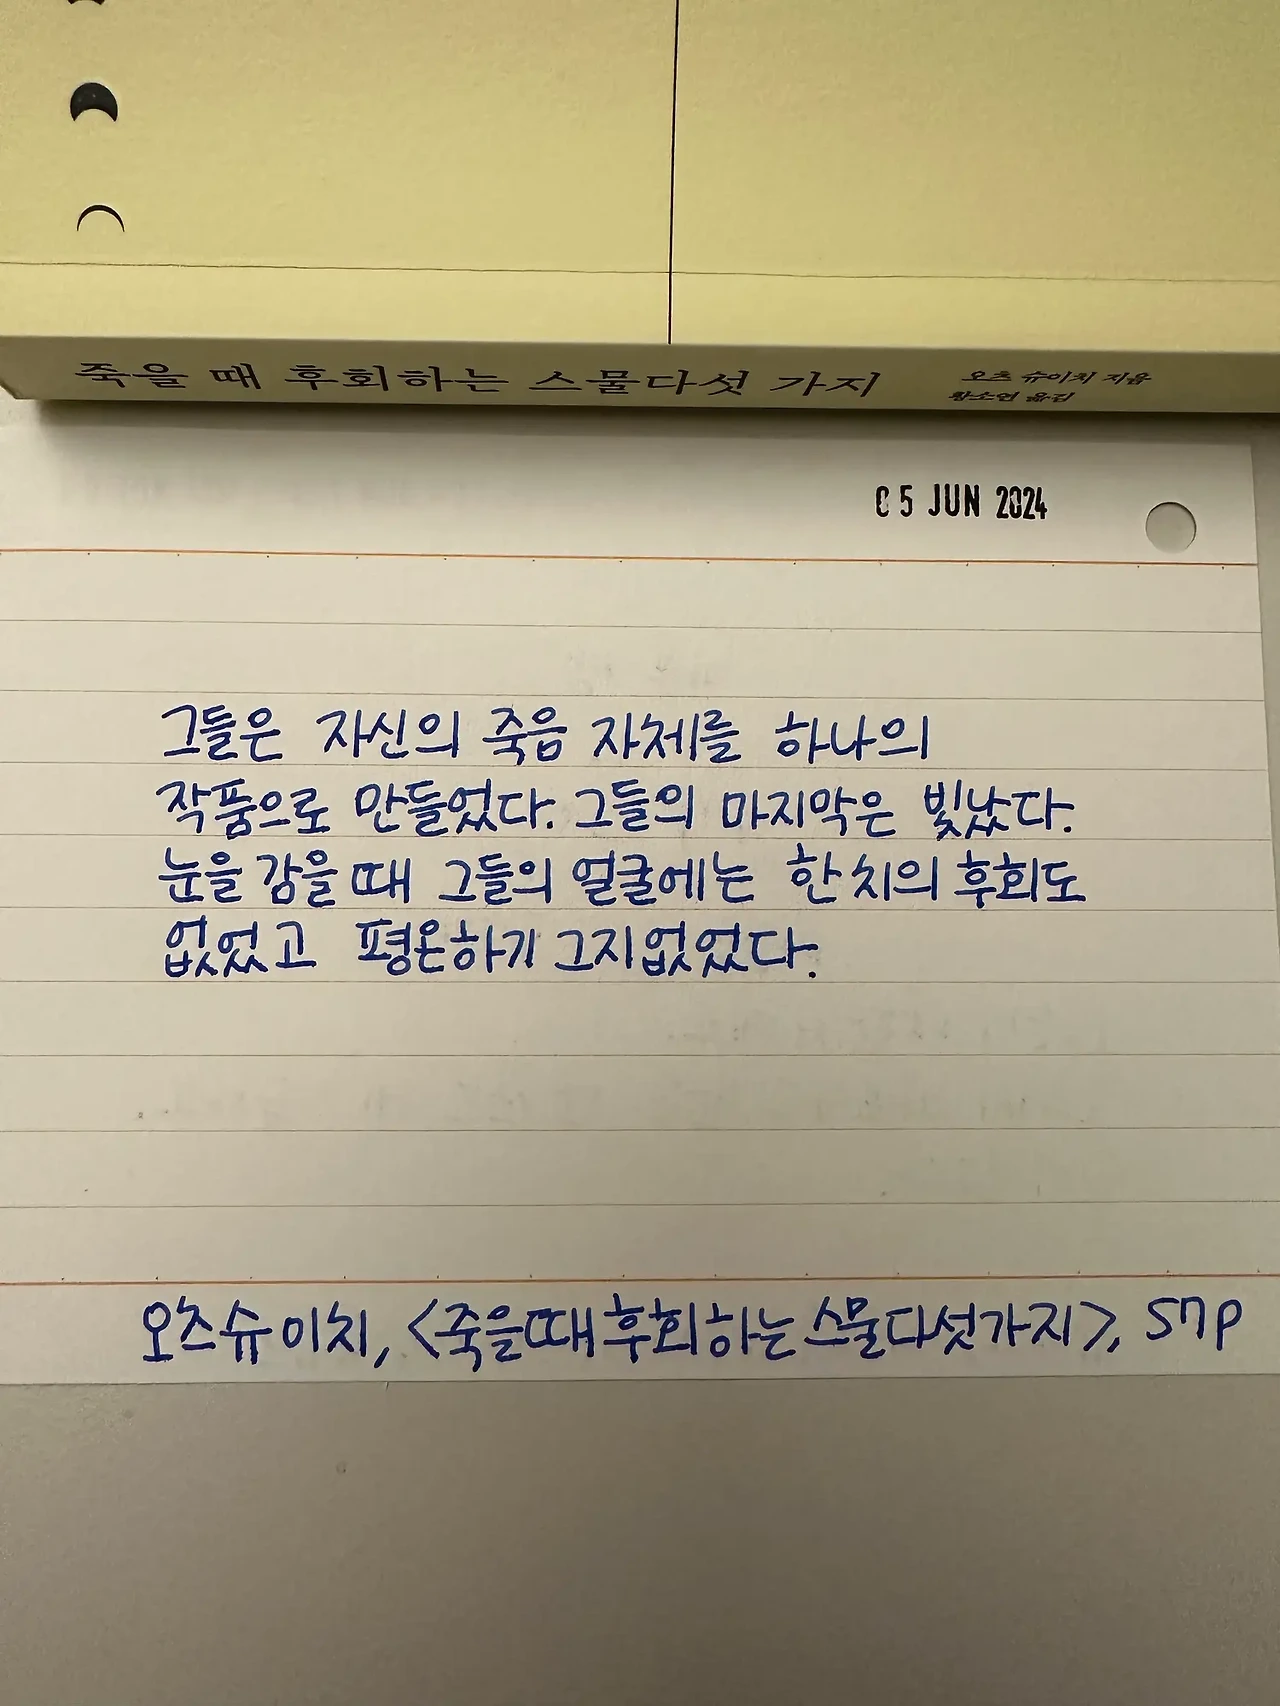 죽을 때 후회하는 스물다섯 가지
오츠 슈이치 지음
황소연 옮김
05 JUN 2024
그들은 자신의 죽음 자체를 하나의
작품으로 만들었다. 그들의 마지막은 빛났다.
눈을 감을 때 그들의 얼굴에는 한 치의 후회도
없었고 평온하기 그지없었다.
오츠 슈이치, <죽을때후회하는스물다섯가지>, 57p